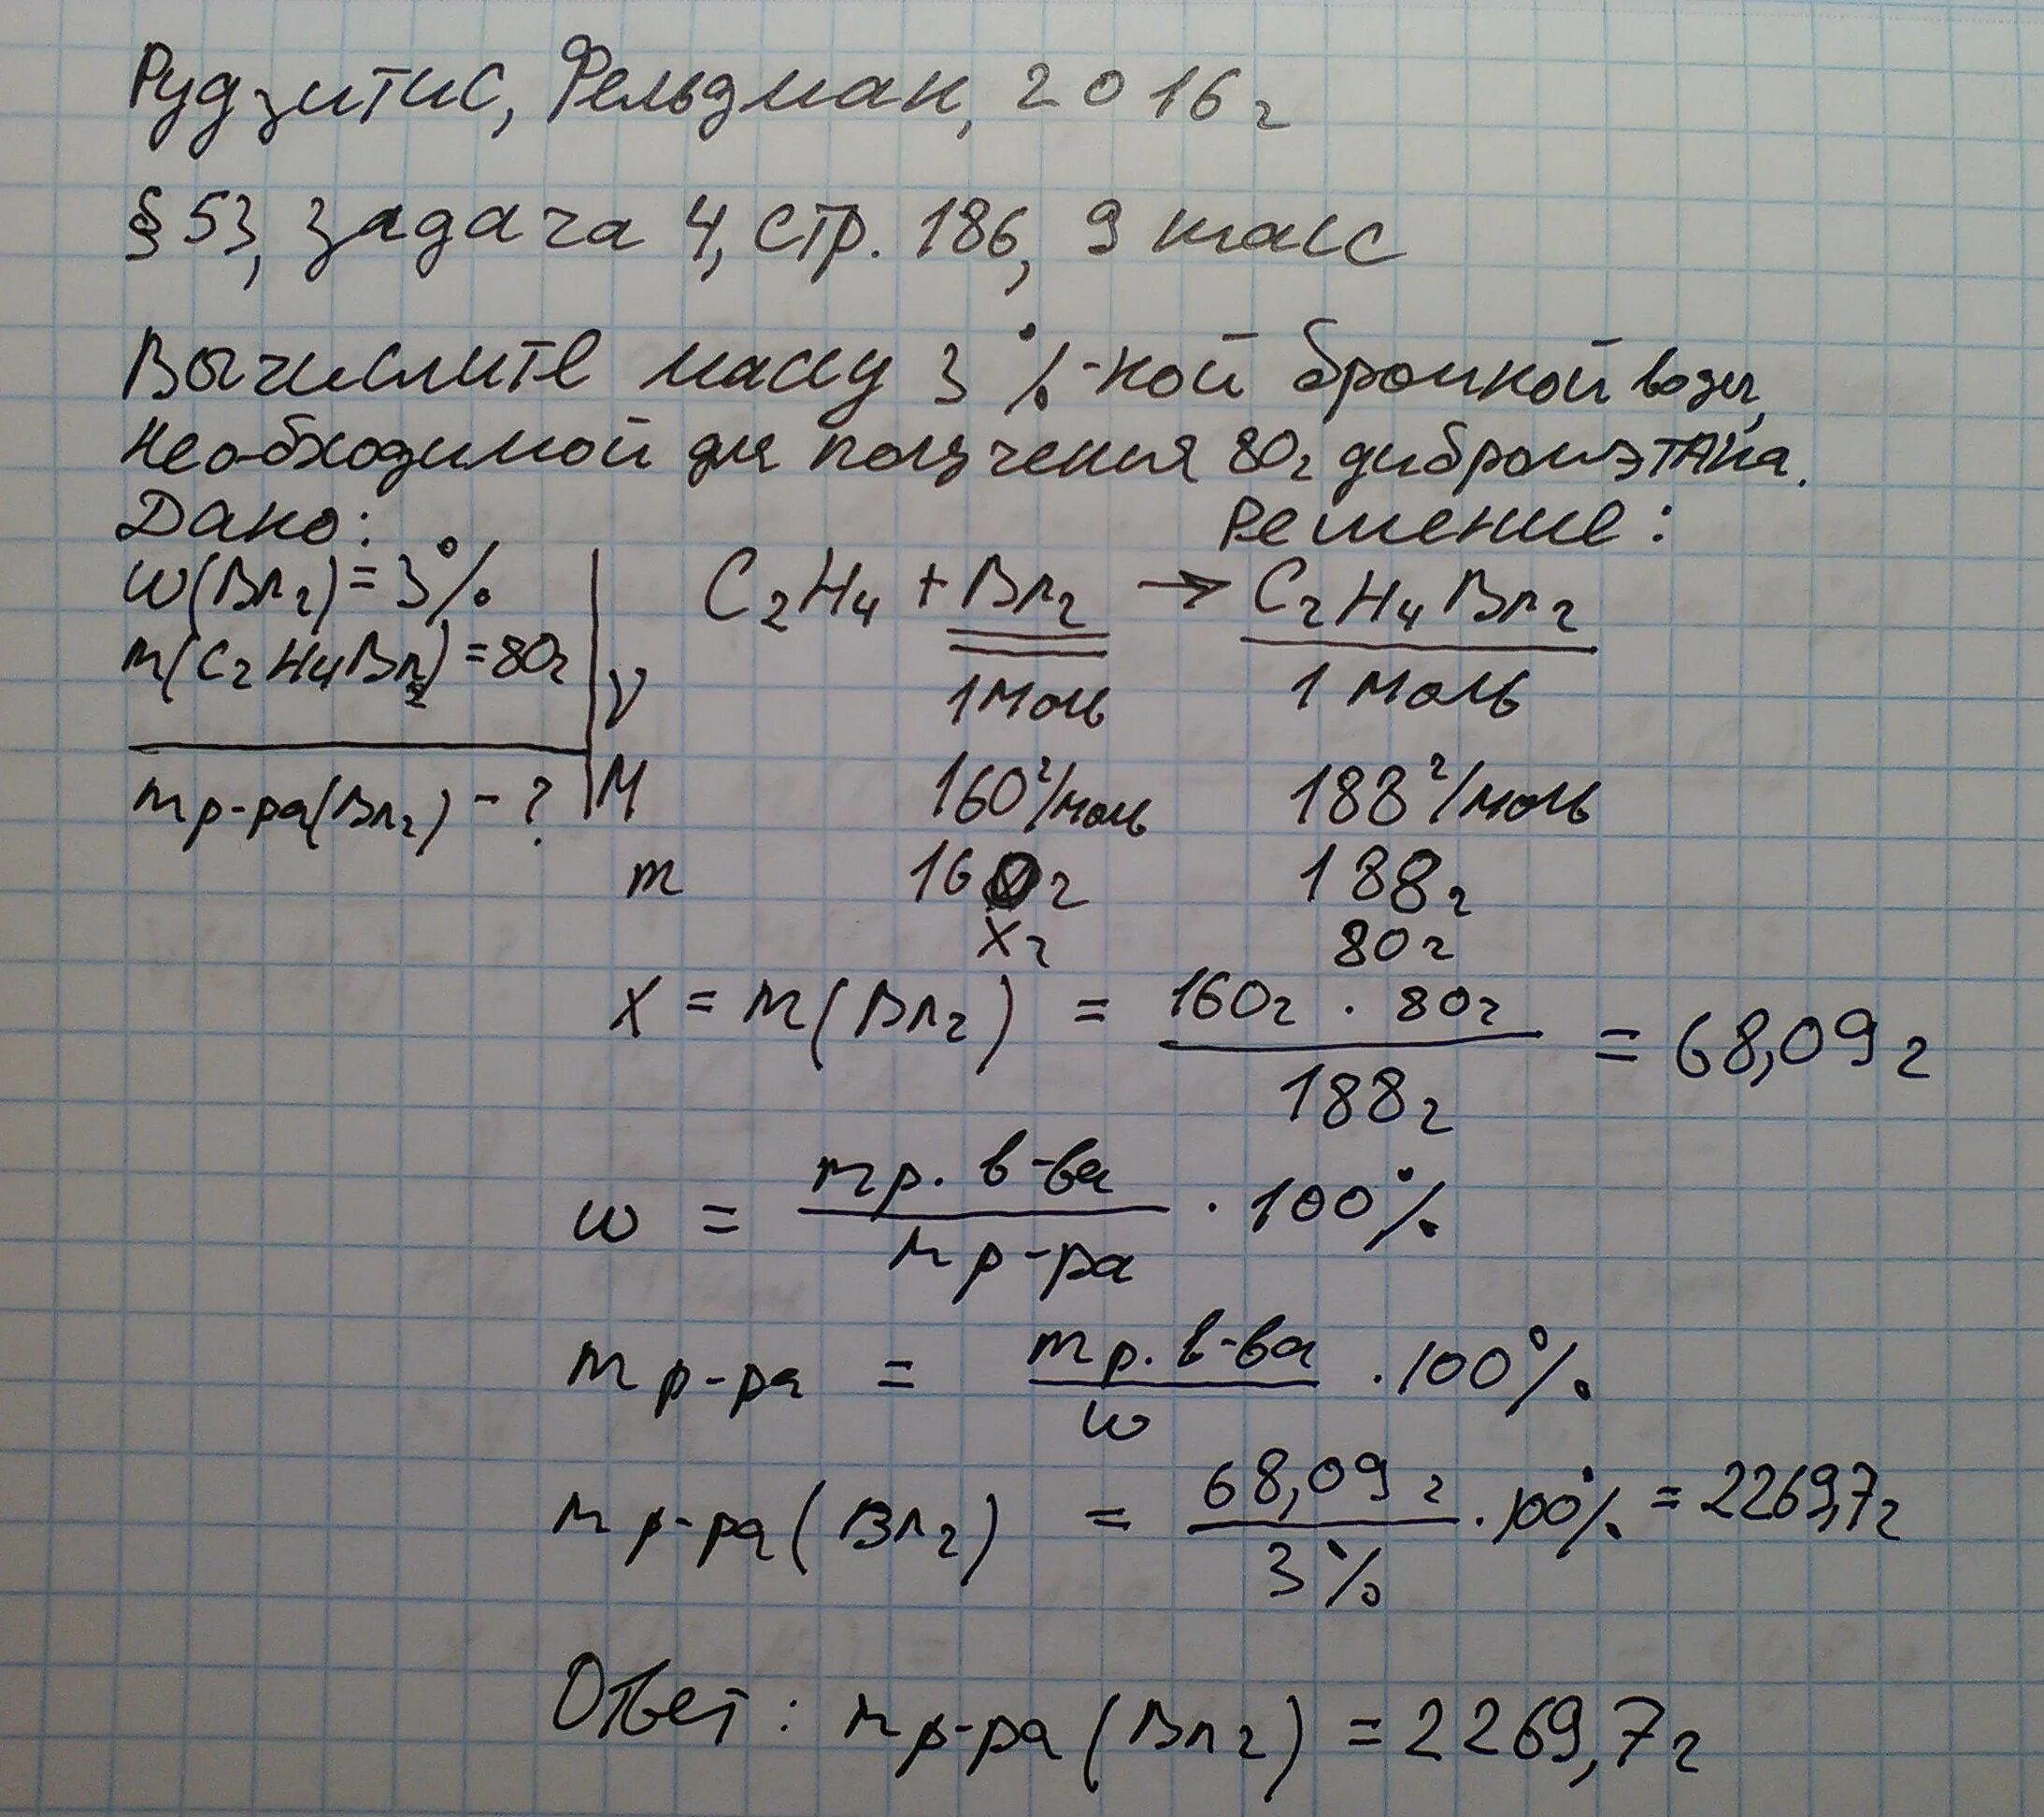 Рудзитис, Фельдман, 2016г
§ 53, задача 4, стр. 186, 9 класс
Вычислите массу 3%-ной бромной воды,
необходимой для получения 80г дибромэтана.
Дано: Решение:
w(Br₂)=3% C₂H₄ + Br₂ → C₂H₄Br₂
m(C₂H₄Br₂)=80г
ν 1моль 1 моль
mр-ра(Br₂) - ? M 160г/моль 188г/моль
m 160г 188г
xг 80г
X = m(Br₂) = 160г · 80г / 188г = 68,09г
w = mр. в-ва / mр-ра · 100%
mр-ра = mр. в-ва / w · 100%
mр-ра(Br₂) = 68,09г / 3% · 100% = 2269,7г
Ответ: mр-ра(Br₂) = 2269,7г